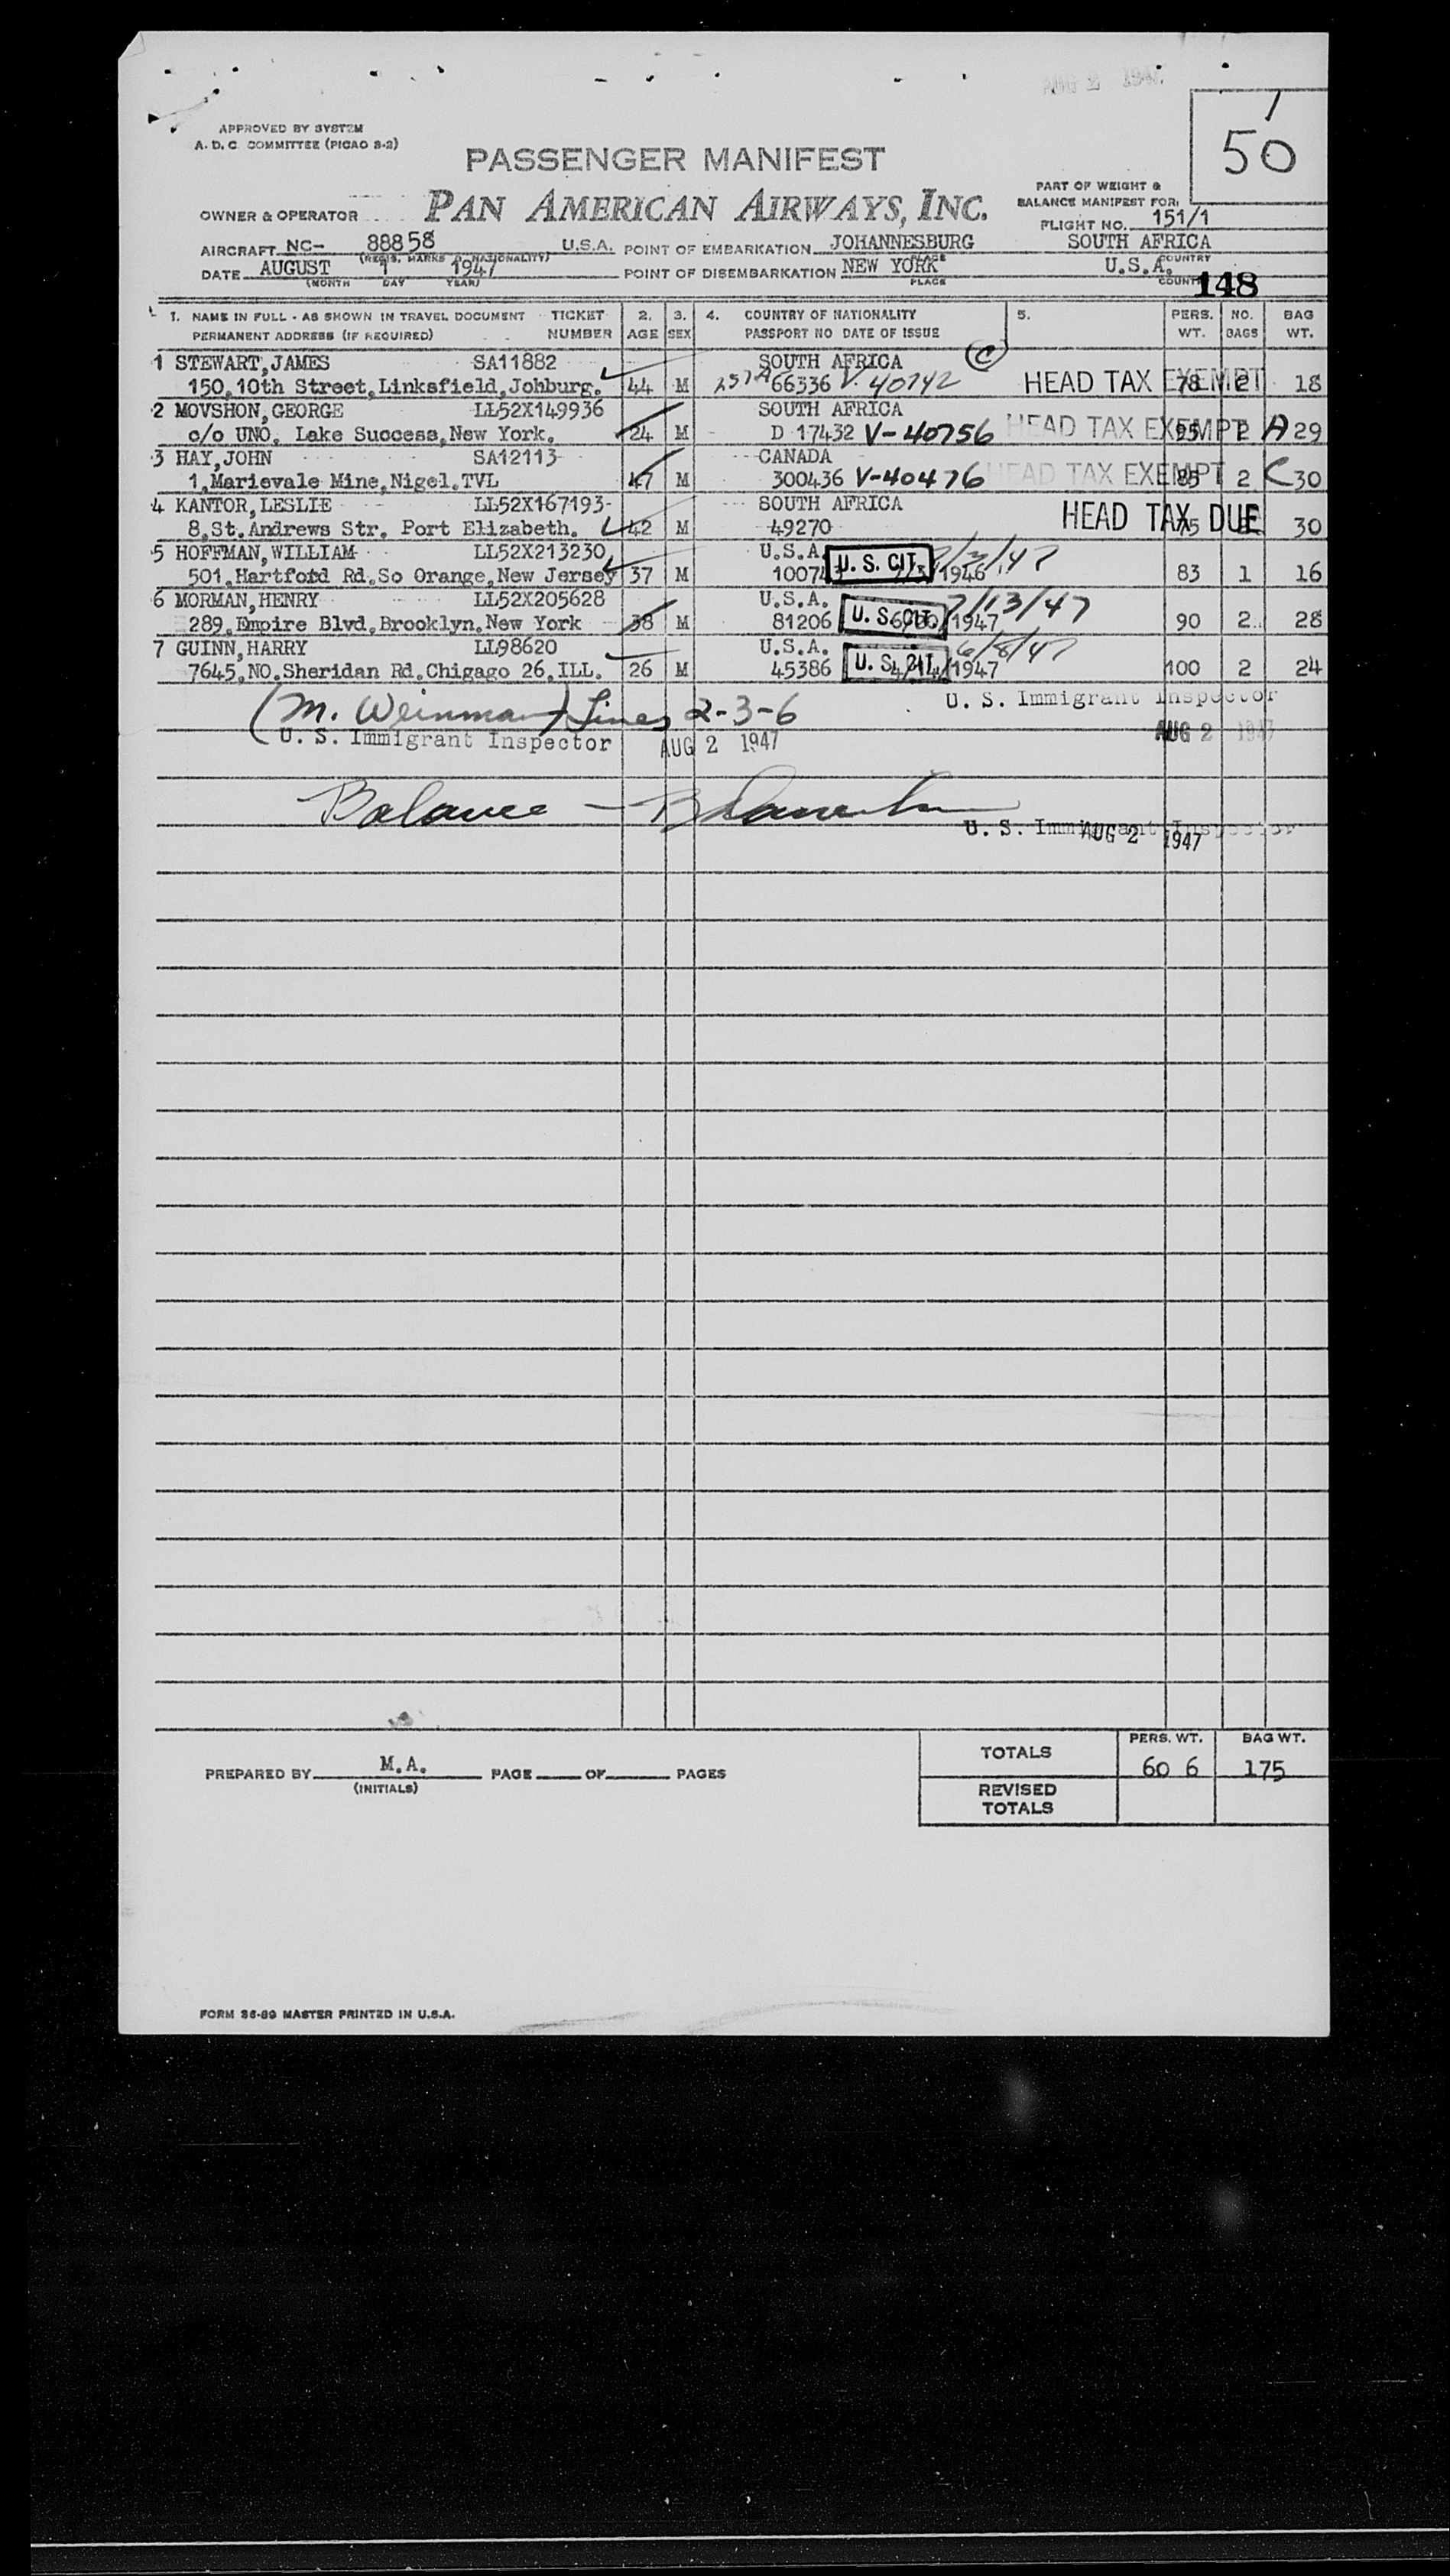 1
50
APPROVED BY SYSTEM
A. D. C. COMMITTEE (PICAO 3-2)
PASSENGER MANIFEST
PART OF WEIGHT &
BALANCE MANIFEST FOR:
OWNER & OPERATOR PAN AMERICAN AIRWAYS, INC.
FLIGHT NO. 151/1
AIRCRAFT NC- 88858 U.S.A. POINT OF EMBARKATION JOHANNESBURG SOUTH AFRICA
(REGIS. MARKS & NATIONALITY) PLACE COUNTRY
DATE AUGUST 1 1947 POINT OF DISEMBARKATION NEW YORK U.S.A.
(MONTH DAY YEAR) PLACE
148
1. NAME IN FULL - AS SHOWN IN TRAVEL DOCUMENT TICKET 2. 3. 4. COUNTRY OF NATIONALITY 5. PERS. NO. BAG
PERMANENT ADDRESS (IF REQUIRED) NUMBER AGE SEX PASSPORT NO DATE OF ISSUE WT. BAGS WT.
1 STEWART, JAMES SA11882 SOUTH AFRICA C
150,10th Street,Linksfield,Johburg. 44 M 66336 V. 40742 HEAD TAX EXEMPT 78 2 18
2 MOVSHON, GEORGE LL52X149936 SOUTH AFRICA
c/o UNO, Lake Success,New York. 24 M D 17432 V-40756 HEAD TAX EXEMPT 95 2 A 29
3 HAY, JOHN SA12113 CANADA
1,Marievale Mine,Nigel.TVL 47 M 300436 V-40476 HEAD TAX EXEMPT 85 2 C 30
4 KANTOR, LESLIE LL52X167193 SOUTH AFRICA
8,St.Andrews Str. Port Elizabeth. 42 M 49270 HEAD TAX DUE 75 30
5 HOFFMAN, WILLIAM LL52X213230 U.S.A.
501,Hartford Rd.So Orange,New Jersey 37 M U. S. CIT. 1946 83 1 16
6 MORMAN, HENRY LL52X205628 U.S.A. 7/13/47
289,Empire Blvd,Brooklyn.New York 38 M 81206 U. S. CIT. 1947 90 2 28
7 GUINN, HARRY LL98620 U.S.A. 6/8/47
7645,NO.Sheridan Rd.Chigago 26.ILL. 26 M 45386 U. S. CIT. 4/14/1947 100 2 24
(M. Weinman) Lines 2-3-6 U. S. Immigrant Inspector
U. S. Immigrant Inspector AUG 2 1947 AUG 2 1947
Balance -
U. S. Immigrant Inspector
AUG 2 1947
PERS. WT. BAG WT.
TOTALS 60 6 175
PREPARED BY M.A. PAGE OF PAGES
(INITIALS)
REVISED
TOTALS
FORM 36-89 MASTER PRINTED IN U.S.A.